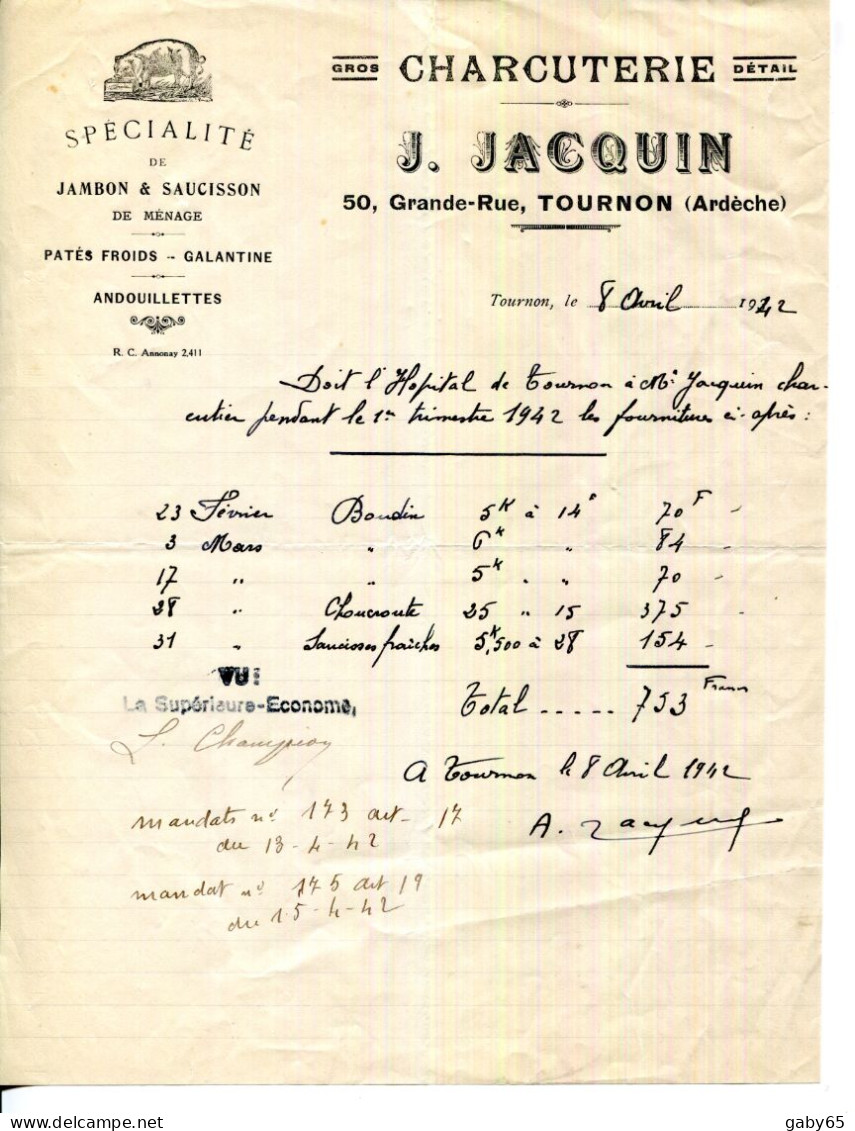 SPÉCIALITÉ
DE
JAMBON & SAUCISSON
DE MÉNAGE
PATÉS FROIDS -- GALANTINE
ANDOUILLETTES
R. C. Annonay 2,411
GROS CHARCUTERIE DÉTAIL
J. JACQUIN
50, Grande-Rue, TOURNON (Ardèche)
Tournon, le 8 Avril 1942
Doit l'Hopital de Tournon à Mr Jacquin char-
cutier pendant le 1er trimestre 1942 les fournitures ci-après :
23 Février Boudin 5K à 14F 70F -
3 Mars " 6K " 84 -
17 " " 5K " " 70 -
28 " Choucroute 25 " 15 375 -
31 " Saucisses fraîches 5K,500 à 28 154 -
Total ..... 753 Francs
VU:
La Supérieure-Econome,
L. Champion
A Tournon le 8 Avril 1942
A. Jacquin
mandats no 173 art- 17
du 13-4-42
mandat no 175 art 19
du 15-4-42
gaby65